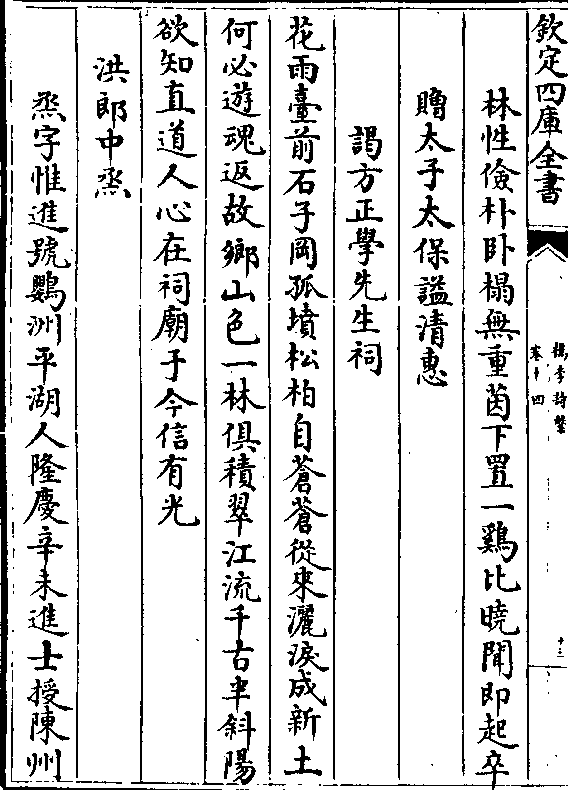 欽定四庫全書
檇李詩繫
卷十四
十三
林性儉朴卧榻無重茵下置一鷄比曉聞即起卒
贈太子太保諡清惠
謁方正學先生祠
花雨臺前石子岡孤墳松柏自蒼蒼從來灑淚成新土
何必遊魂返故鄉山色一林俱積翠江流千古半斜陽
欲知直道人心在祠廟于今信有光
洪郎中烝
烝字惟進號鸚洲平湖人隆慶辛未進士授陳州